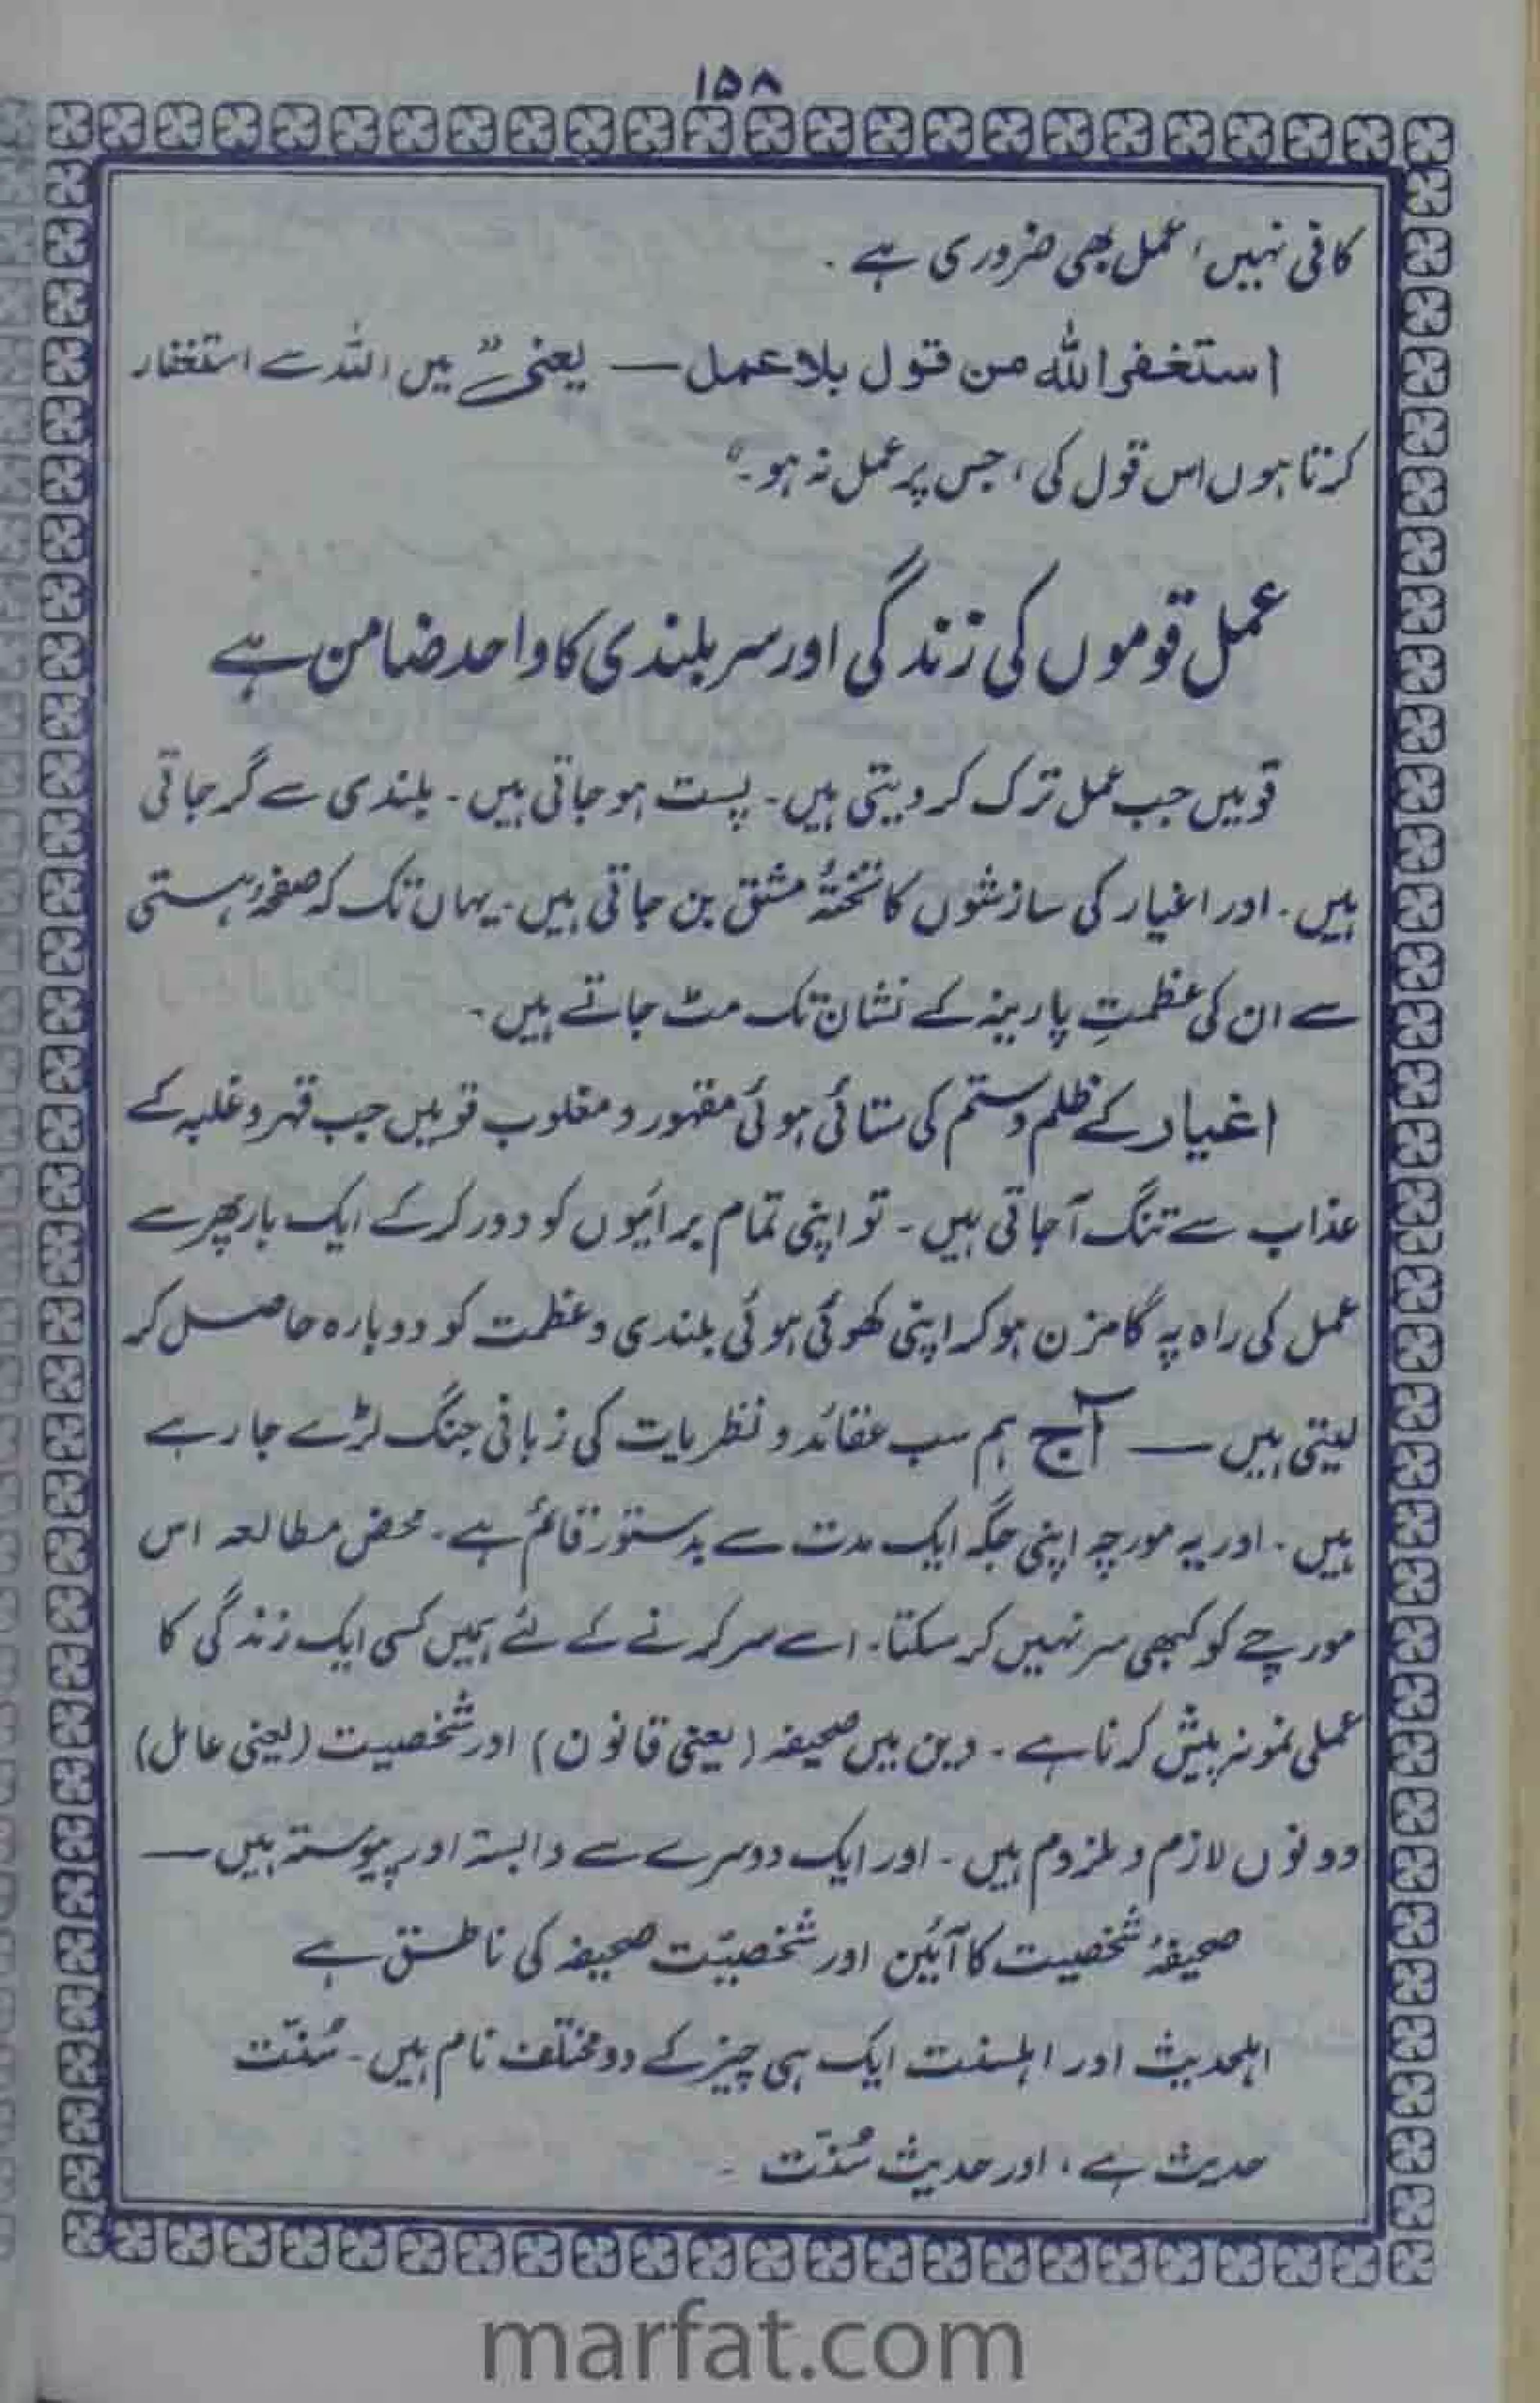 ۱۵۸
کافی نہیں، عمل بھی ضروری ہے ۔
استغفر اللہ من قول بلا عمل — یعنی "میں اللہ سے استغفار
کرتا ہوں اس قول کی، جس پر عمل نہ ہو۔"
عمل قوموں کی زندگی اور سر بلندی کا واحد ضامن ہے
قومیں جب عمل ترک کر دیتی ہیں۔ پست ہو جاتی ہیں۔ بلندی سے گر جاتی
ہیں۔ اور اغیار کی سازشوں کا تختۂ مشق بن جاتی ہیں۔ یہاں تک کہ صفحۂ ہستی
سے ان کی عظمتِ پارینہ کے نشان تک مٹ جاتے ہیں۔
اغیار کے ظلم و ستم کی ستائی ہوئی مقہور و مغلوب قومیں جب قہر و غلبہ کے
عذاب سے تنگ آ جاتی ہیں۔ تو اپنی تمام برائیوں کو دور کر کے ایک بار پھر سے
عمل کی راہ پہ گامزن ہو کر اپنی کھوئی ہوئی بلندی و عظمت کو دوبارہ حاصل کر
لیتی ہیں — آج ہم سب عقائد و نظریات کی زبانی جنگ لڑے جا رہے
ہیں۔ اور یہ مورچہ اپنی جگہ ایک مدت سے بدستور قائم ہے۔ محض مطالعہ اس
مورچے کو کبھی سر نہیں کر سکتا۔ اسے سر کرنے کے لئے ہمیں کسی ایک زندگی کا
عملی نمونہ پیش کرنا ہے ۔ دین میں صحیفہ (یعنی قانون) اور شخصیت (یعنی عامل)
دونوں لازم و ملزوم ہیں ۔ اور ایک دوسرے سے وابستہ اور پیوستہ ہیں —
صحیفۂ شخصیت کا آئین اور شخصیّت صحیفہ کی ناطق ہے
اہلحدیث اور اہلسنت ایک ہی چیز کے دو مختلف نام ہیں۔ سُنّت
حدیث ہے، اور حدیث سُنّت ۔
marfat.com